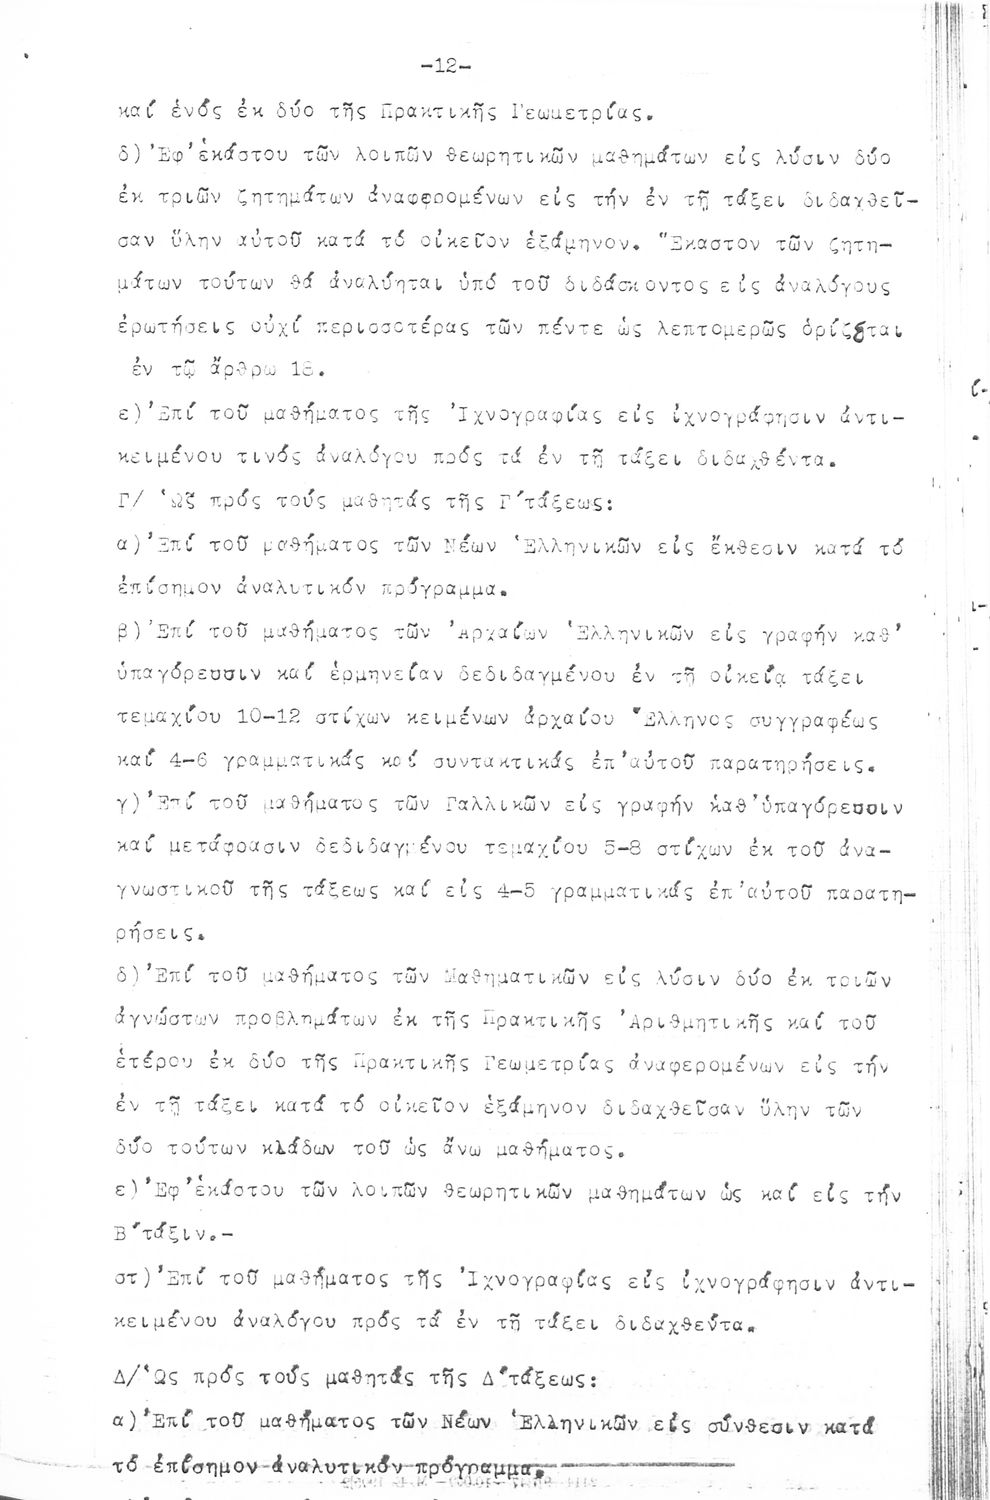 -12-
καί ἑνός ἐκ δύο τῆς Πρακτικῆς Γεωμετρίας.
δ) Ἐφ'ἑκάστου τῶν λοιπῶν θεωρητικῶν μαθημάτων εἰς λύσιν δύο
ἐκ τριῶν ζητημάτων ἀναφερομένων εἰς τήν ἐν τῇ τάξει διδαχθεῖ-
σαν ὕλην αὐτοῦ κατά τό οἰκεῖον ἑξάμηνον. Ἕκαστον τῶν ζητη-
μάτων τούτων θά ἀναλύηται ὑπό τοῦ διδάσκοντος εἰς ἀναλόγους
ἐρωτήσεις οὐχί περισσοτέρας τῶν πέντε ὡς λεπτομερῶς ὁρίζεται
ἐν τῷ ἄρθρω 18.
ε) Ἐπί τοῦ μαθήματος τῆς Ἰχνογραφίας εἰς ἰχνογράφησιν ἀντι-
κειμένου τινός ἀναλόγου πρός τά ἐν τῇ τάξει διδαχθέντα.
Γ/ Ὡς πρός τούς μαθητάς τῆς Γ΄τάξεως:
α) Ἐπί τοῦ μαθήματος τῶν Νέων Ἑλληνικῶν εἰς ἔκθεσιν κατά τό
ἐπίσημον ἀναλυτικόν πρόγραμμα.
β) Ἐπί τοῦ μαθήματος τῶν Ἀρχαίων Ἑλληνικῶν εἰς γραφήν καθ'
ὑπαγόρευσιν καί ἑρμηνείαν δεδιδαγμένου ἐν τῇ οἰκείᾳ τάξει
τεμαχίου 10-12 στίχων κειμένων ἀρχαίου Ἕλληνος συγγραφέως
καί 4-6 γραμματικάς καί συντακτικάς ἐπ'αὐτοῦ παρατηρήσεις.
γ) Ἐπί τοῦ μαθήματος τῶν Γαλλικῶν εἰς γραφήν καθ'ὑπαγόρευσιν
καί μετάφρασιν δεδιδαγμένου τεμαχίου 5-8 στίχων ἐκ τοῦ ἀνα-
γνωστικοῦ τῆς τάξεως καί εἰς 4-5 γραμματικάς ἐπ'αὐτοῦ παρατη-
ρήσεις.
δ) Ἐπί τοῦ μαθήματος τῶν Μαθηματικῶν εἰς λύσιν δύο ἐκ τριῶν
ἀγνώστων προβλημάτων ἐκ τῆς Πρακτικῆς Ἀριθμητικῆς καί τοῦ
ἑτέρου ἐκ δύο τῆς Πρακτικῆς Γεωμετρίας ἀναφερομένων εἰς τήν
ἐν τῇ τάξει κατά τό οἰκεῖον ἑξάμηνον διδαχθεῖσαν ὕλην τῶν
δύο τούτων κλάδων τοῦ ὡς ἄνω μαθήματος.
ε) Ἐφ'ἑκάστου τῶν λοιπῶν θεωρητικῶν μαθημάτων ὡς καί εἰς τήν
Β΄τάξιν.-
στ) Ἐπί τοῦ μαθήματος τῆς Ἰχνογραφίας εἰς ἰχνογράφησιν ἀντι-
κειμένου ἀναλόγου πρός τά ἐν τῇ τάξει διδαχθεύτα.
Δ/ Ὡς πρός τούς μαθητάς τῆς Δ΄τάξεως:
α) Ἐπί τοῦ μαθήματος τῶν Νέων Ἑλληνικῶν εἰς σύνθεσιν κατά
τό ἐπίσημον ἀναλυτικόν πρόγραμμα.